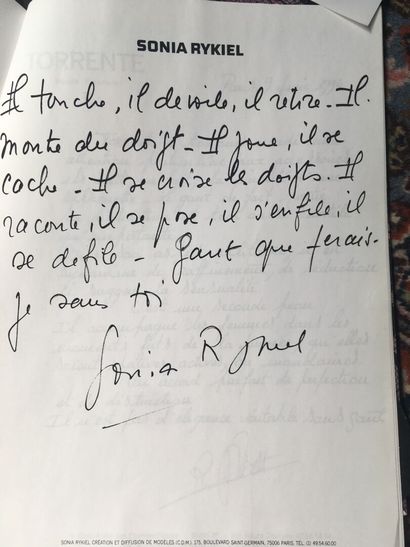 SONIA RYKIEL
Il touche, il dévoile, il retire - Il
montre du doigt - Il joue, il se
cache - Il se croise les doigts. Il
raconte, il se pose, il s'enfile, il
se défile - Gant que ferais-
je sans toi
Sonia Rykiel
SONIA RYKIEL CRÉATION ET DIFFUSION DE MODÈLES (C.D.M.) 175, BOULEVARD SAINT GERMAIN, 75006 PARIS. TÉL. (1) 49.54.60.00